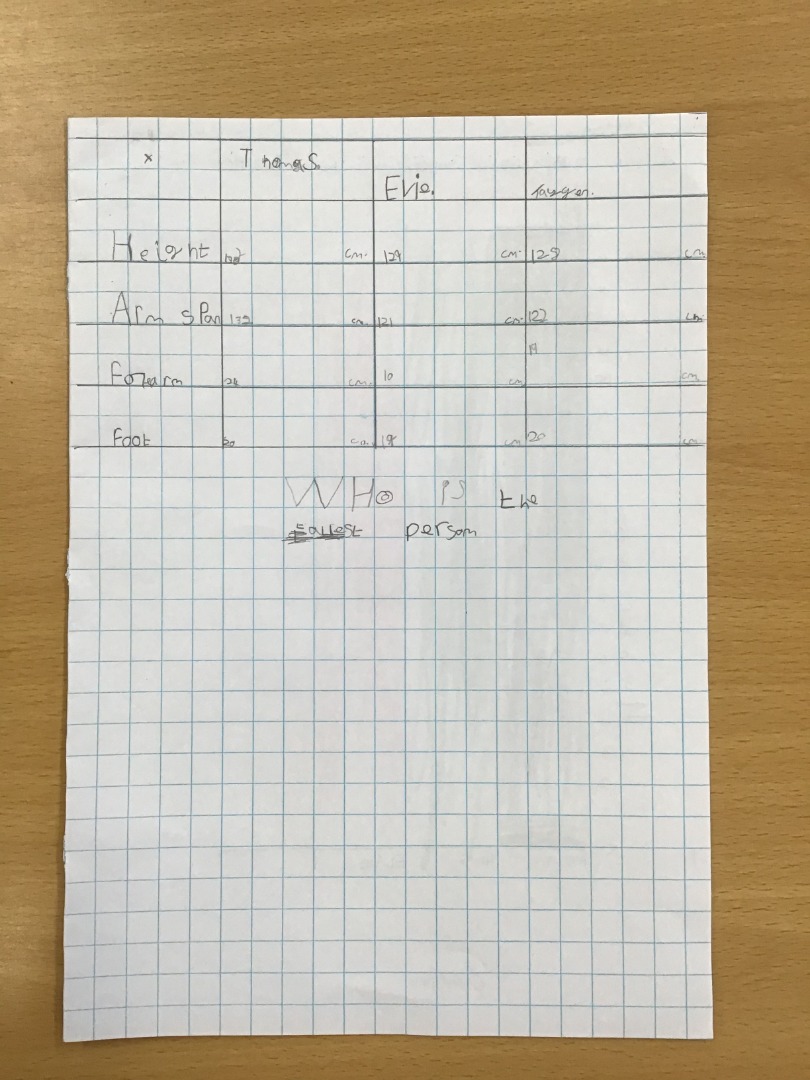 x Thomas.
Evie.
Height cm. 129 cm. 128 cm
Arm span 132 cm. 121 cm. 122 cm.
19
Forarm 24 cm. 10 cm cm
Foot 20 cm. 18 cm 20 cm
WHo is the
tallest person